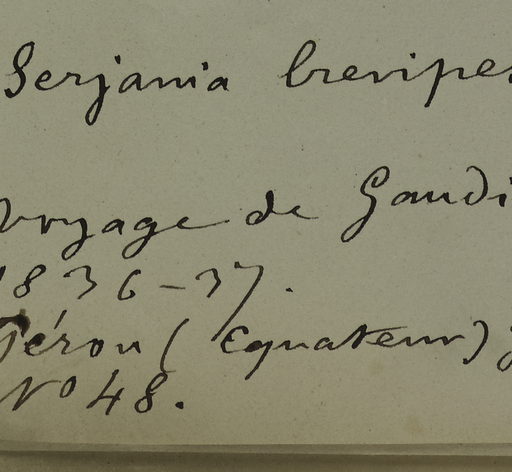 Serjania brevipes
Voyage de Gaudi
1836-37.
Pérou (Equateur)
No 48.